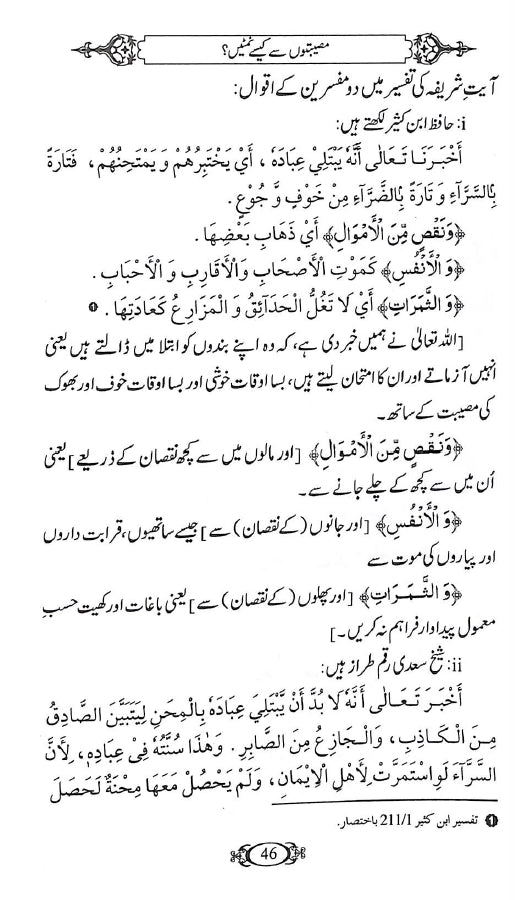 مصیبتوں سے کیسے نمٹیں؟
آیتِ شریفہ کی تفسیر میں دو مفسرین کے اقوال:
i: حافظ ابن کثیر لکھتے ہیں:
أَخْبَرَنَا تَعَالٰى أَنَّهٗ يَبْتَلِيْ عِبَادَهٗ ، أَيْ يَخْتَبِرُهُمْ وَ يَمْتَحِنُهُمْ ، فَتَارَةً
بِالسَّرَّآءِ وَ تَارَةً بِالضَّرَّآءِ مِنْ خَوْفٍ وَّ جُوْعٍ .
﴿وَ نَقْصٍ مِّنَ الْأَمْوَالِ﴾ أَيْ ذَهَابِ بَعْضِهَا .
﴿وَ الْأَنْفُسِ﴾ كَمَوْتِ الْأَصْحَابِ وَالْأَقَارِبِ وَ الْأَحْبَابِ .
﴿وَ الثَّمَرَاتِ﴾ أَيْ لَا تَغُلُّ الْحَدَآئِقُ وَ الْمَزَارِعُ كَعَادَتِهَا . ❶
[اللہ تعالیٰ نے ہمیں خبر دی ہے، کہ وہ اپنے بندوں کو ابتلا میں ڈالتے ہیں یعنی
انہیں آزماتے اور ان کا امتحان لیتے ہیں، بسا اوقات خوشی اور بسا اوقات خوف اور بھوک
کی مصیبت کے ساتھ۔
﴿وَ نَقْصٍ مِّنَ الْأَمْوَالِ﴾ [اور مالوں میں سے کچھ نقصان کے ذریعے] یعنی
اُن میں سے کچھ کے چلے جانے سے۔
﴿وَ الْأَنْفُسِ﴾ [اور جانوں (کے نقصان) سے] جیسے ساتھیوں، قرابت داروں
اور پیاروں کی موت سے
﴿وَ الثَّمَرَاتِ﴾ [اور پھلوں (کے نقصان) سے] یعنی باغات اور کھیت حسبِ
معمول پیداوار فراہم نہ کریں۔]
ii: شیخ سعدی رقم طراز ہیں:
أَخْبَرَ تَعَالٰى أَنَّهٗ لَا بُدَّ أَنْ يَّبْتَلِيَ عِبَادَهٗ بِالْمِحَنِ لِيَتَبَيَّنَ الصَّادِقُ
مِنَ الْكَاذِبِ ، وَالْجَازِعُ مِنَ الصَّابِرِ . وَهٰذَا سُنَّتُهٗ فِيْ عِبَادِهٖ ، لِأَنَّ
السَّرَّآءَ لَوِ اسْتَمَرَّتْ لِأَهْلِ الْإِيْمَانِ ، وَلَمْ يَحْصُلْ مَعَهَا مِحْنَةٌ لَحَصَلَ
❶ تفسیر ابن کثیر 211/1 باختصار.
46